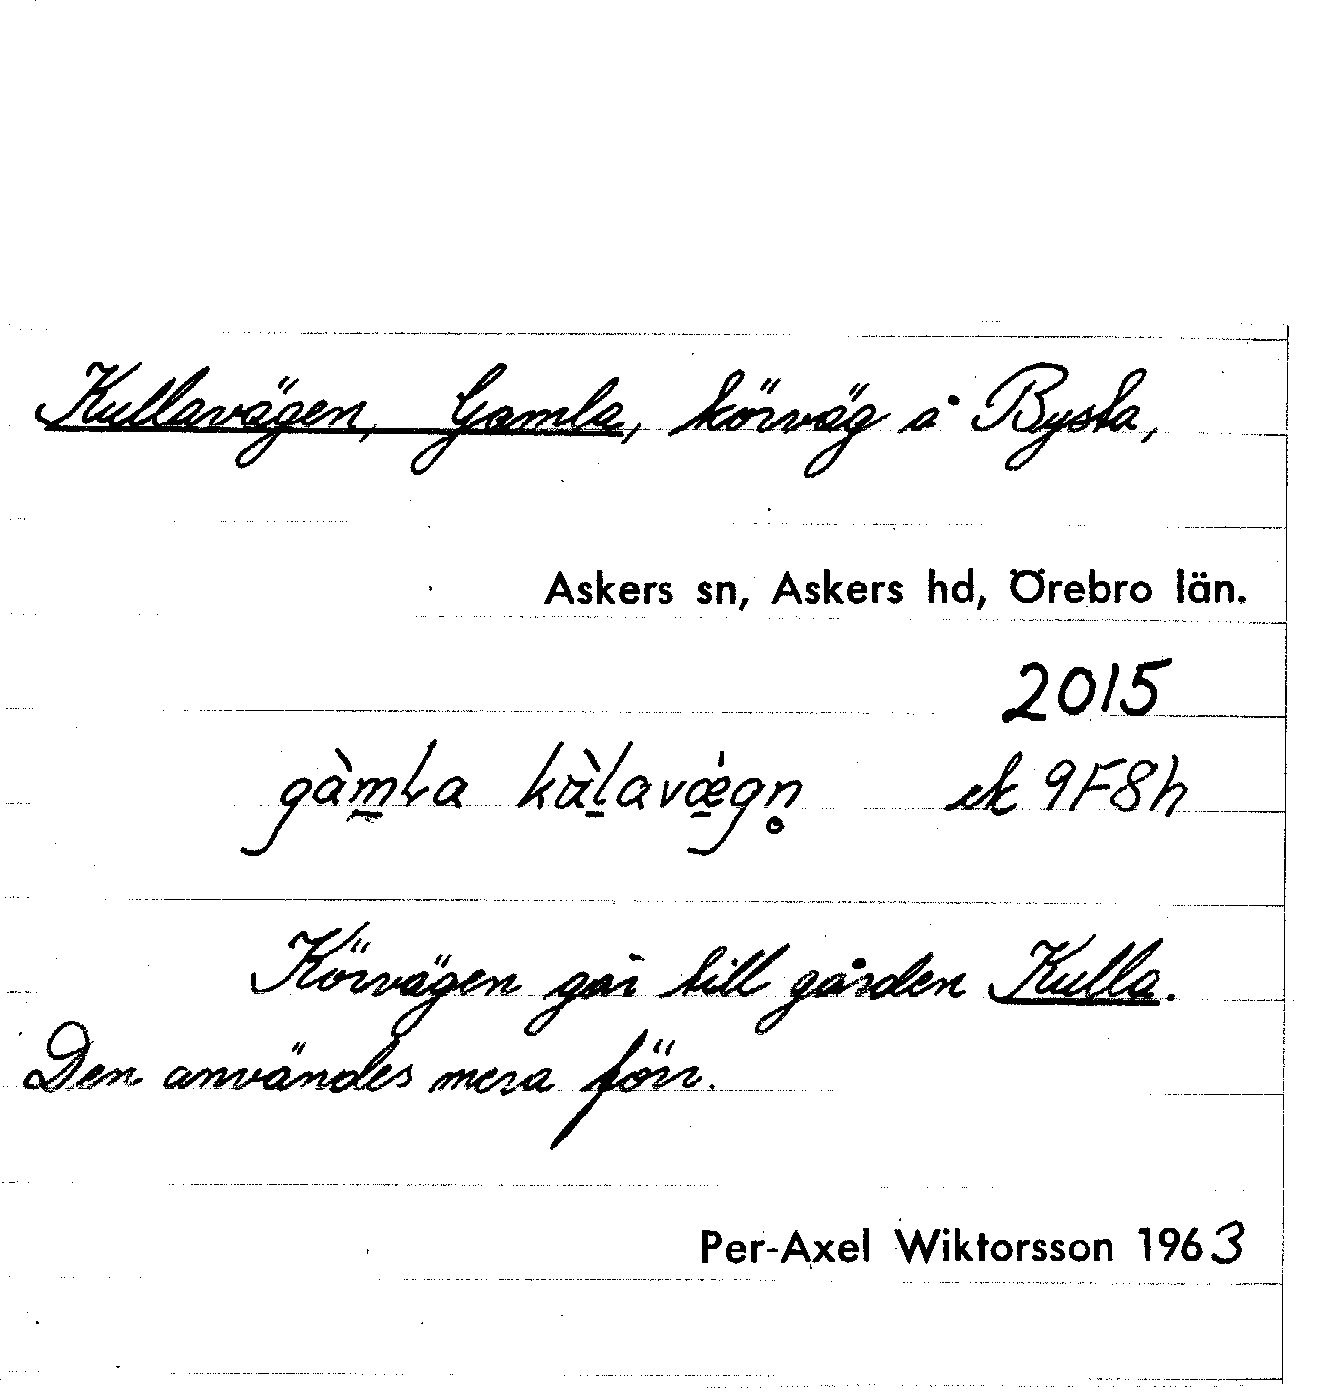 Kullavägen, Gamla, körväg å Bysta,
Askers sn, Askers hd, Örebro län.
2015
gàmla kàlavǽgn̥ ek 9F8h
Körvägen går till gården Kulla.
Den användes mera förr.
Per-Axel Wiktorsson 1963